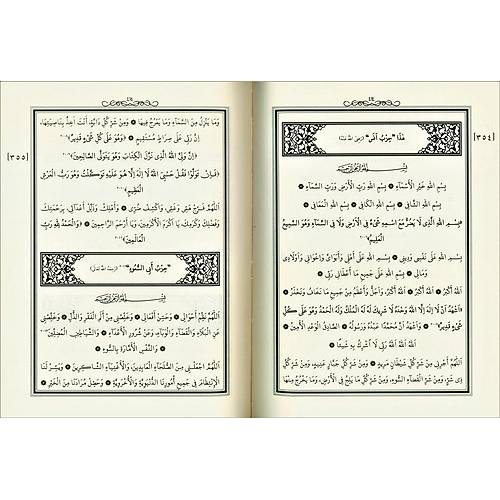 [٣٥٤]
هَذَا "حِزْبُ أَنَسٍ" (رَضِيَ اللَّهُ عَنْهُ)
بِسْمِ اللَّهِ الرَّحْمَنِ الرَّحِيمِ
بِسْمِ اللَّهِ خَيْرِ الْأَسْمَاءِ ۞ بِسْمِ اللَّهِ رَبِّ الْأَرْضِ وَرَبِّ السَّمَاءِ ۞
بِسْمِ اللَّهِ الشَّافِي ۞ بِسْمِ اللَّهِ الْكَافِي ۞ بِسْمِ اللَّهِ الْمُعَافِي ۞
بِسْمِ اللَّهِ الَّذِي لَا يَضُرُّ مَعَ اسْمِهِ شَيْءٌ فِي الْأَرْضِ وَلَا فِي السَّمَاءِ وَهُوَ السَّمِيعُ
الْعَلِيمُ
بِسْمِ اللَّهِ عَلَى نَفْسِي وَدِينِي ۞ بِسْمِ اللَّهِ عَلَى أَهْلِي وَأَبَوَايَ وَإِخْوَانِي وَأَوْلَادِي
وَمَالِي ۞ بِسْمِ اللَّهِ عَلَى جَمِيعِ مَا أَعْطَانِي رَبِّي ۞
اللَّهُ أَكْبَرُ ۞ اللَّهُ أَكْبَرُ ۞ اللَّهُ أَكْبَرُ، وَأَجَلُّ وَأَعْظَمُ مِنْ جَمِيعِ مَا نَخَافُ وَنَحْذَرُ ۞
أَشْهَدُ أَنْ لَا إِلَهَ إِلَّا اللَّهُ وَحْدَهُ لَا شَرِيكَ لَهُ لَهُ الْمُلْكُ وَلَهُ الْحَمْدُ وَهُوَ عَلَى كُلِّ
شَيْءٍ قَدِيرٌ ۞ وَأَشْهَدُ أَنَّ مُحَمَّدًا عَبْدُهُ وَرَسُولُهُ ۞ الصَّادِقُ الْوَعْدِ الْأَمِينُ ۞
اللَّهُ اللَّهُ رَبِّي لَا أُشْرِكُ بِهِ شَيْئًا ۞
اللَّهُمَّ أَجِرْنِي مِنْ شَرِّ كُلِّ شَيْطَانٍ مَرِيدٍ ۞ وَمِنْ شَرِّ كُلِّ جَبَّارٍ عَنِيدٍ، وَمِنْ شَرِّ كُلِّ ذِي
شَرٍّ، وَمِنْ شَرِّ الْقَضَاءِ السُّوءِ، وَمِنْ شَرِّ كُلِّ مَا يَلِجُ فِي الْأَرْضِ، وَمَا يَخْرُجُ مِنْهَا
[٣٥٥]
وَمَا يَنْزِلُ مِنَ السَّمَاءِ وَمَا يَعْرُجُ فِيهَا ۞ وَمِنْ شَرِّ كُلِّ دَابَّةٍ، أَنْتَ آخِذٌ بِنَاصِيَتِهَا،
إِنَّ رَبِّي عَلَى صِرَاطٍ مُسْتَقِيمٍ ۞ وَهُوَ عَلَى كُلِّ شَيْءٍ قَدِيرٌ
إِنَّ وَلِيِّيَ اللَّهُ الَّذِي نَزَّلَ الْكِتَابَ وَهُوَ يَتَوَلَّى الصَّالِحِينَ
فَإِنْ تَوَلَّوْا فَقُلْ حَسْبِيَ اللَّهُ لَا إِلَهَ إِلَّا هُوَ عَلَيْهِ تَوَكَّلْتُ وَهُوَ رَبُّ الْعَرْشِ
الْعَظِيمِ
اللَّهُمَّ فَرِّجْ هَمِّي وَغَمِّي، وَاكْشِفْ كَرْبِي ۞ وَأَهْلِكْ أَعْدَائِي، بِرَحْمَتِكَ
وَفَضْلِكَ وَكَرَمِكَ، يَا أَكْرَمَ الْأَكْرَمِينَ، وَيَا أَرْحَمَ الرَّاحِمِينَ ۞ وَالْحَمْدُ لِلَّهِ رَبِّ
الْعَالَمِينَ
"حِزْبُ أَبِي السُّعُودِ"
بِسْمِ اللَّهِ الرَّحْمَنِ الرَّحِيمِ
اللَّهُمَّ نَظِّمْ أَحْوَالِي ۞ وَحَسِّنْ أَفْعَالِي ۞ وَخَلِّصْنِي مِنْ أَلَمِ الْفَقْرِ وَالذُّلِّ ۞ وَخَلِّصْنِي
عَنِ الْبَلَاءِ وَالْقَضَاءِ وَالْوَبَاءِ، وَعَنْ شُرُورِ الْأَعْدَاءِ ۞ وَالشَّيَاطِينِ الْمُضِلِّينَ
وَالنَّفْسِ الْأَمَّارَةِ بِالسُّوءِ ۞
اللَّهُمَّ اجْعَلْنِي مِنَ الصُّلَحَاءِ الْعَابِدِينَ، وَالْأَغْنِيَاءِ الشَّاكِرِينَ ۞ وَيَسِّرْ لَنَا
الِانْتِظَامَ فِي جَمِيعِ أُمُورِنَا الدُّنْيَوِيَّةِ وَالْأُخْرَوِيَّةِ ۞ وَحَصِّلْ مُرَادَنَا مِنَ الْخَيْرِ ۞